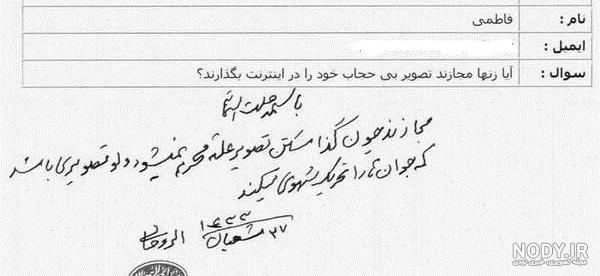 نام : فاطمی
ایمیل :
سوال : آیا زنها مجازند تصویر بی حجاب خود را در اینترنت بگذارند؟
باسمه جلت اسمائه
مجازند چون گذاشتن تصویر علت محریم نمیشود ولو تصویری باشد
که جوان را تحریک شهوی میکند
۲۷ شعبان ۱۴۳۳ الروحانی
NODY.IR